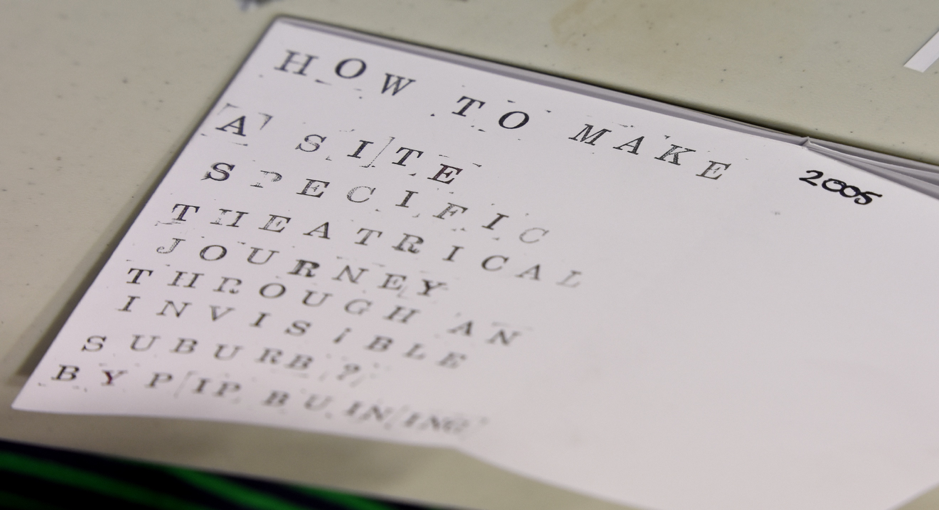 HOW TO MAKE
2005
A SITE
SPECIFIC
THEATRICAL
JOURNEY
THROUGH AN
INVISIBLE
SUBURB?
BY PIP